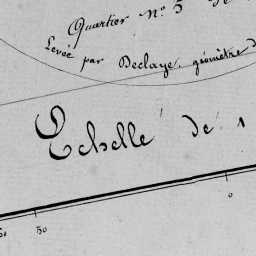 Quartier N° 5 de
Levée par Declaye, géomètre d
Echelle de 1
50 0